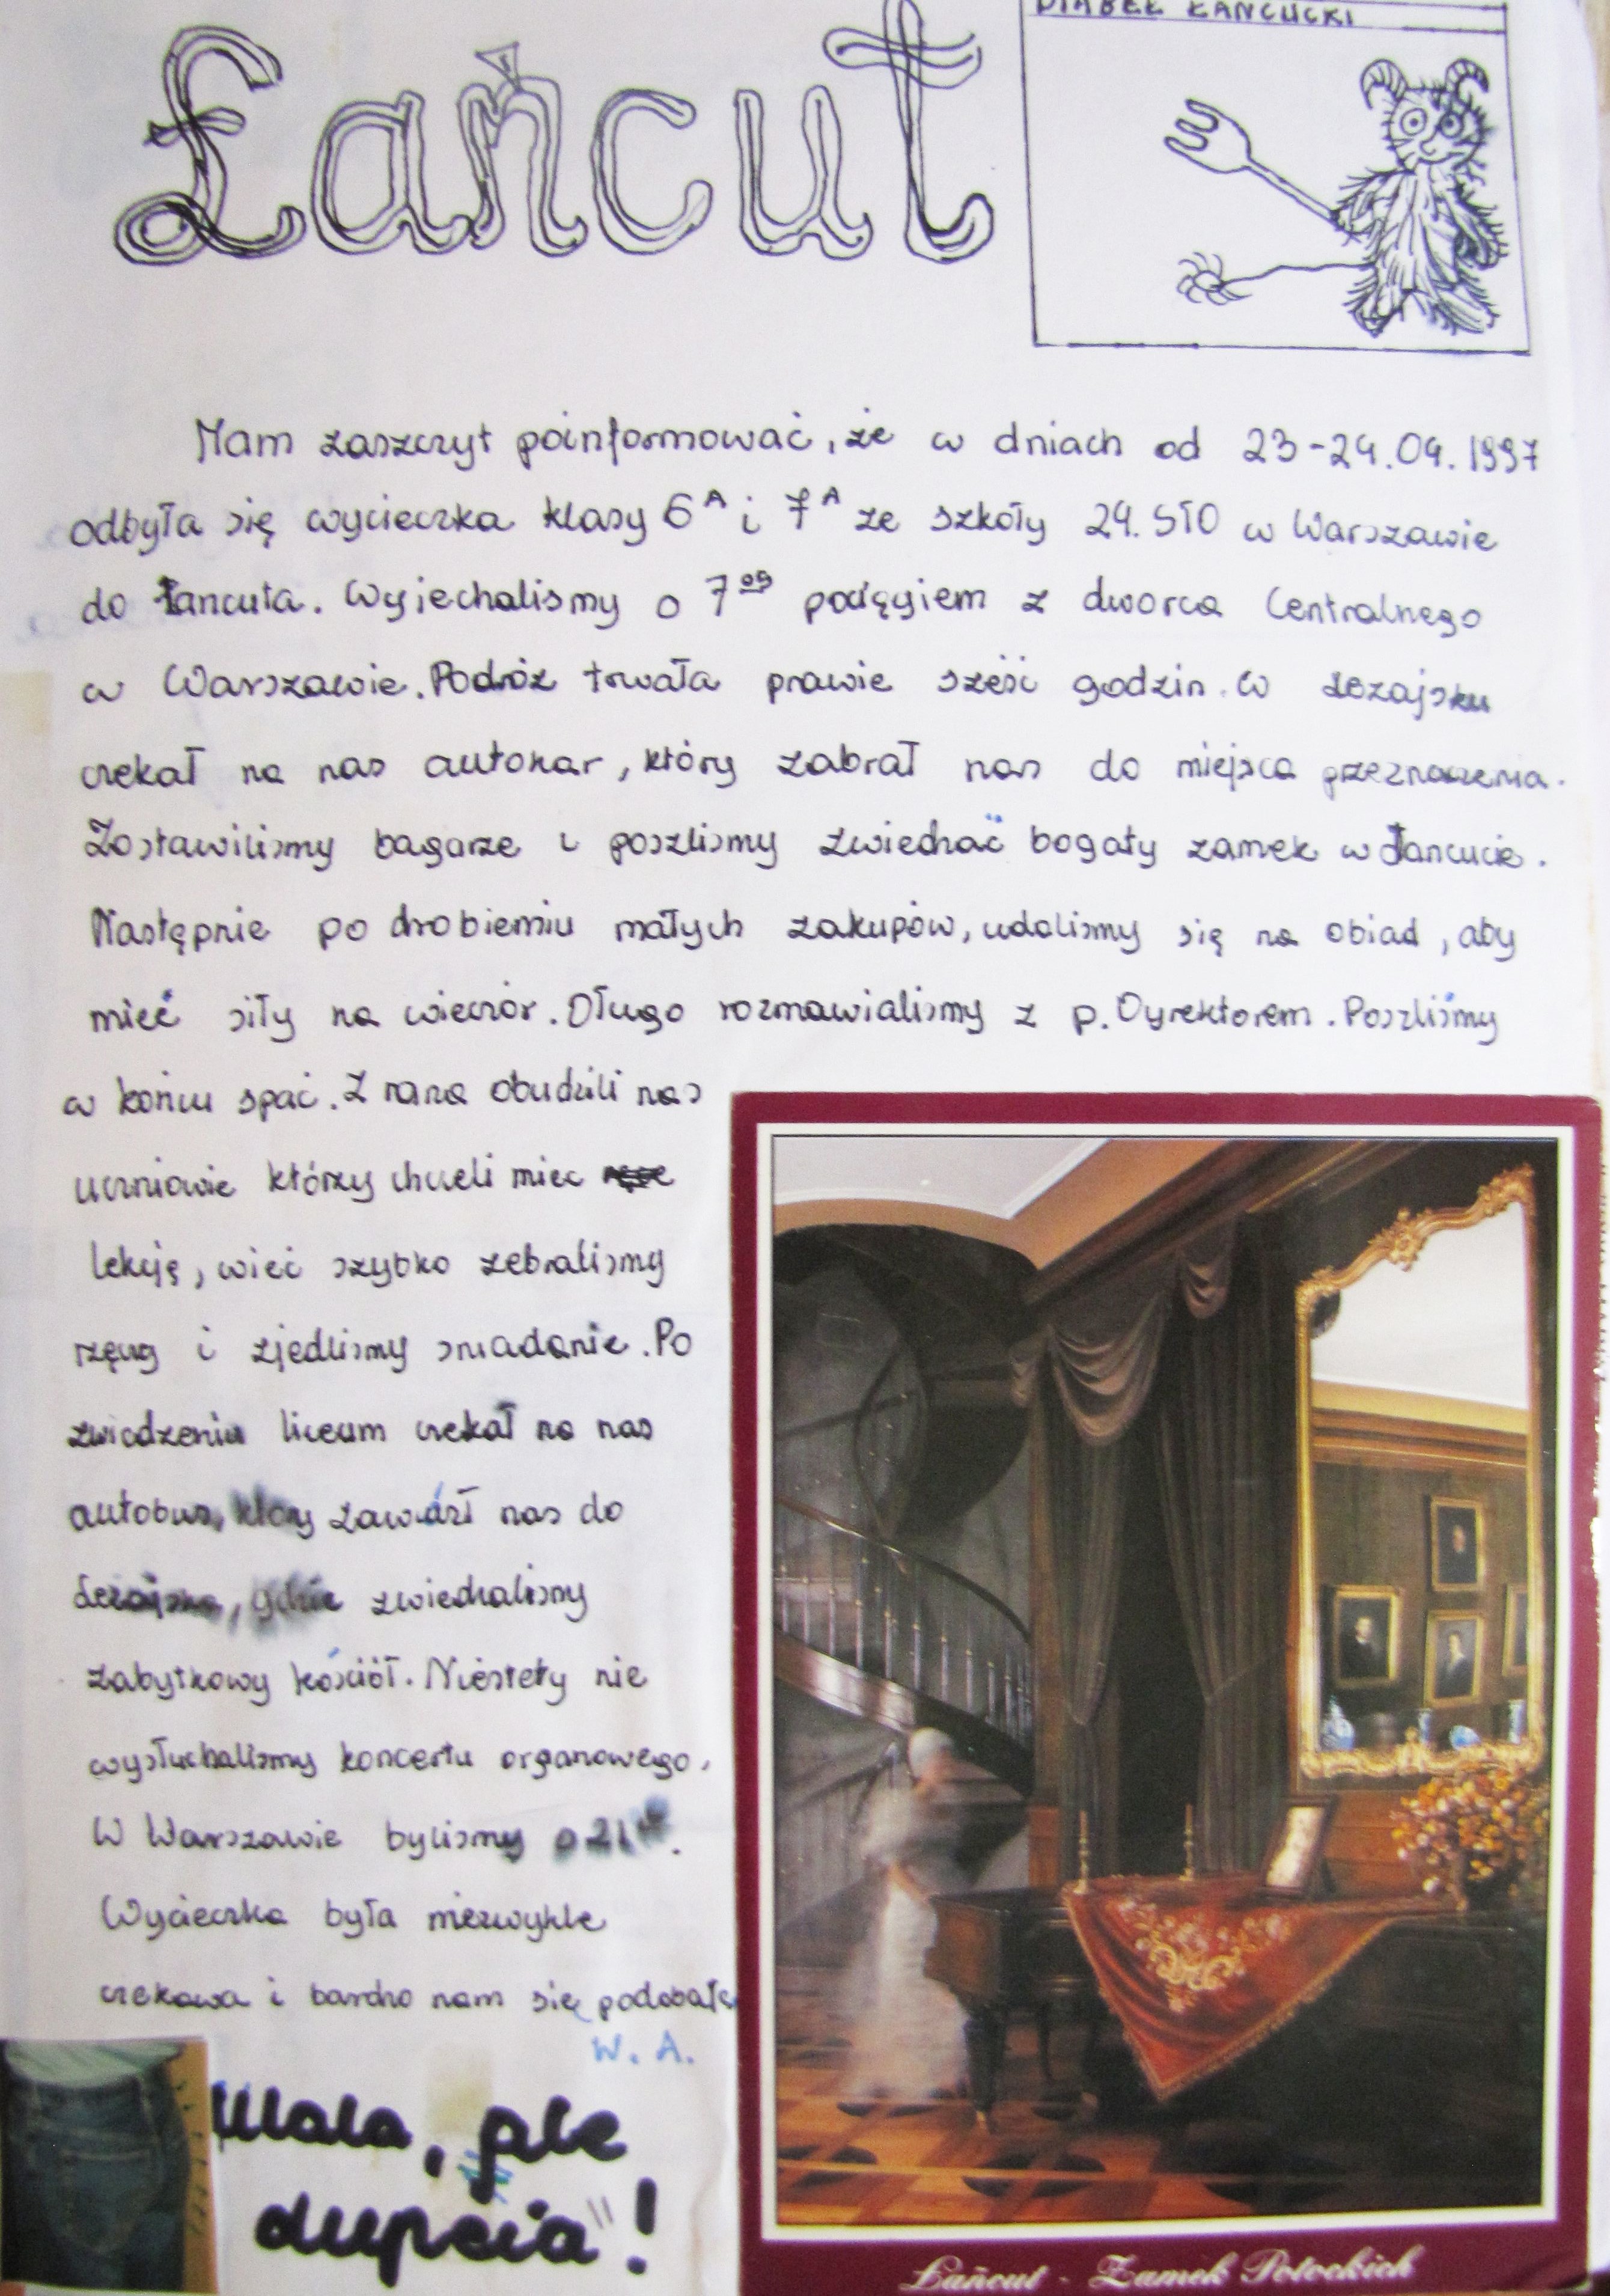 Łańcut
DIABEŁ ŁAŃCUCKI
Mam zaszczyt poinformować, że w dniach od 23-24.04.1997
odbyła się wycieczka klasy 6A i 7A ze szkoły 24. STO w Warszawie
do Łancuta. Wyjechalismy o 7 pociągiem z dworca Centralnego
w Warszawie. Podróż trwała prawie sześć godzin. W Leżajsku
czekał na nas autokar, który zabrał nas do miejsca przeznaczenia.
Zostawilismy bagarze i poszlismy zwiedzać bogaty zamek w Łancucie.
Następnie po drobieniu małych zakupów, udalismy się na obiad, aby
mieć siły na wieczór. Długo rozmawialismy z p. Dyrektorem. Poszliśmy
w końcu spać. Z rana obudzili nas
uczniowie którzy chcieli miec
lekcję, wieć szybko zebralismy
rzęczy i zjedlismy sniadanie. Po
zwiedzeniu liceum czekał na nas
autobus, który zawiózł nas do
Leżajska, gdzie zwiedzalismy
zabytkowy kościół. Niestety nie
wysłuchalismy koncertu organowego.
W Warszawie bylismy o 21
Wycieczka była niezwykle
ciekawa i bardzo nam się podobała
W. A.
Mała, ale
dupcia"!
Łańcut - Zamek Potockich